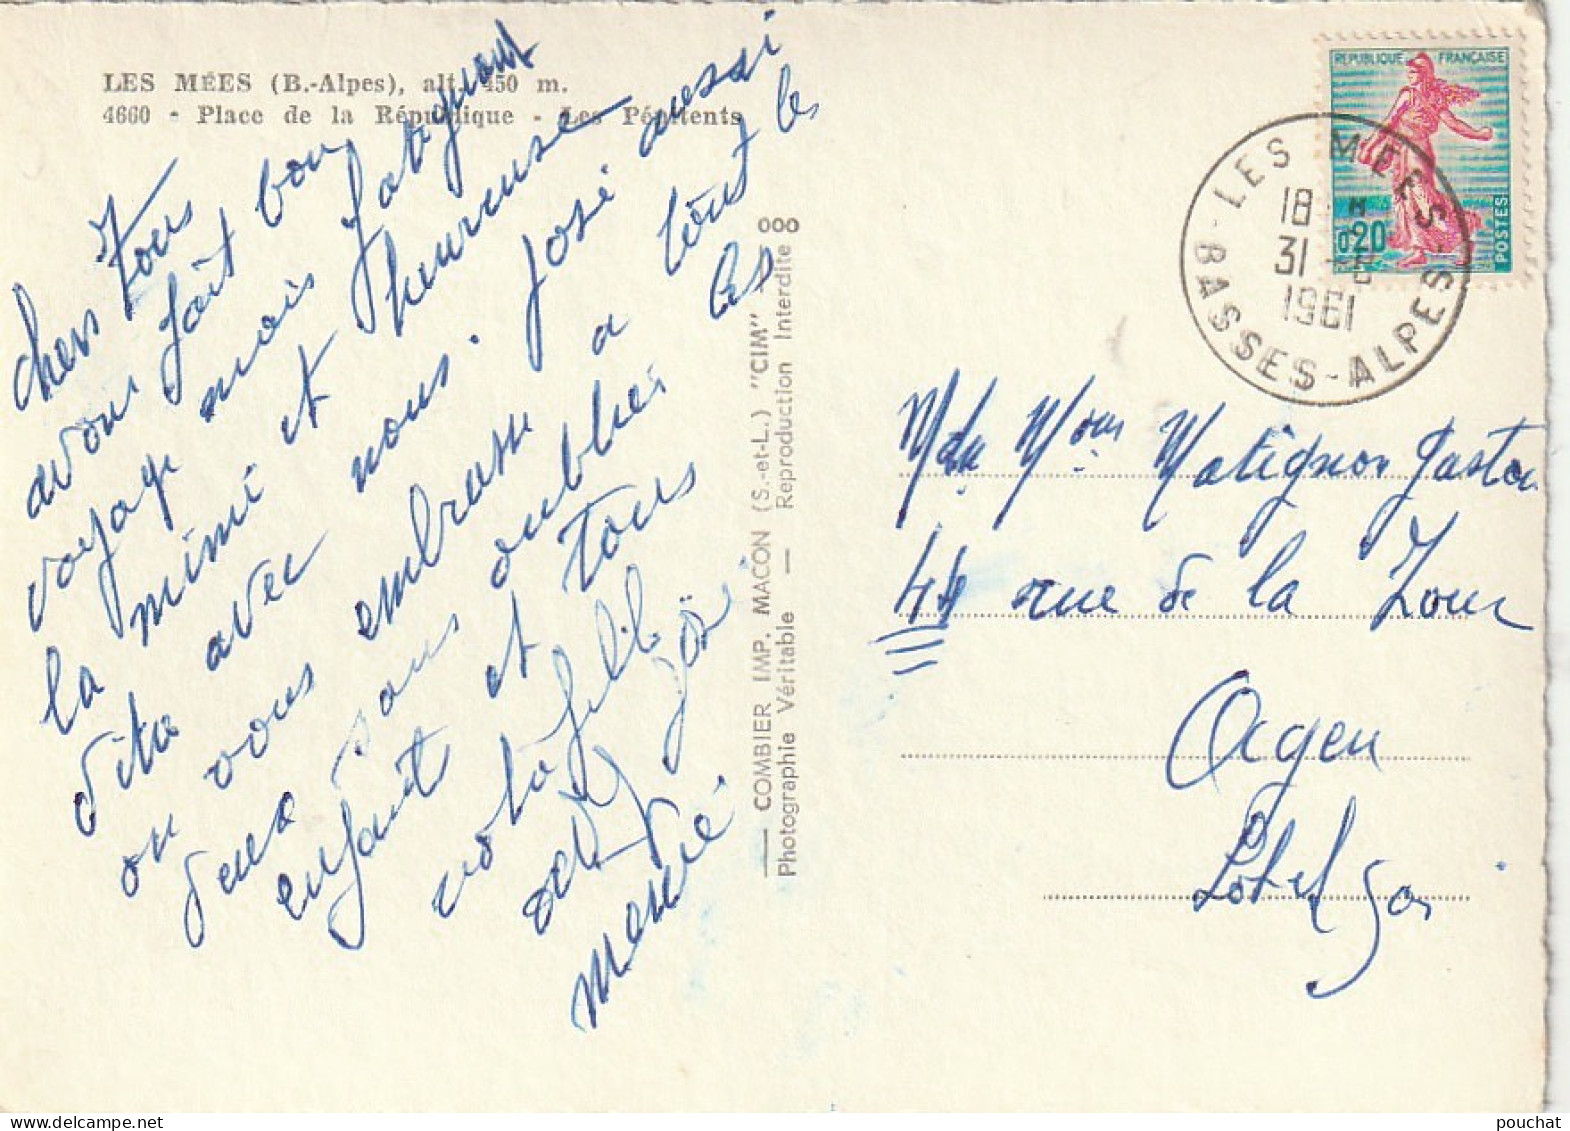 LES MÉES (B.-Alpes), alt. 450 m.
4660 - Place de la République - Les Pénitents
Chers Tous
avons fait bon
voyage mais fatiguant
la mimi et heureuse
d'être avec nous. José aussi
on vous embrasse a tout les
deux sans oublier les
enfant et tous
votre
odil José
mamie
— COMBIER IMP. MACON (S.-et-L.) "CIM" 000
Photographie Véritable — Reproduction Interdite
REPUBLIQUE FRANÇAISE
0,20
POSTES
LES MEES
18 H
31
1961
BASSES-ALPES
Matignon Gaston
44 rue de la Tour
Agen
Lot et Gar
pouchat